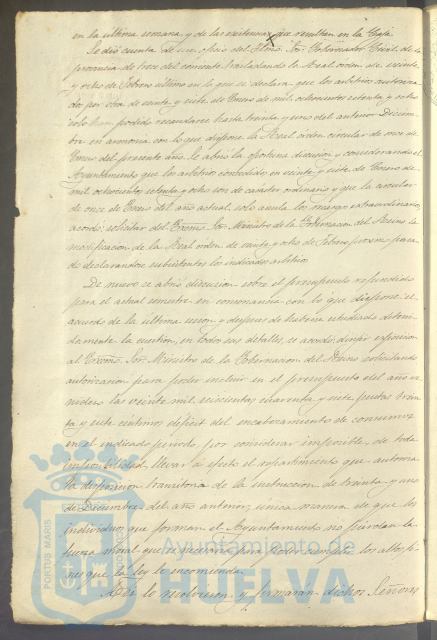 en la última semana y de las existencias que resultan en la Caja.
Se dió cuenta de un oficio del Ilmo. Sor. Gobernador Civil de la
provincia de trece del corriente trasladando la Real orden de veinte
y ocho de Febrero último en la que se declara que los arbitrios autoriza-
dos por otra de veinte y siete de Enero de mil ochocientos setenta y ocho
solo han podido recaudarse hasta treinta y uno del anterior Diciem-
bre en armonía con lo que dispone la Real orden circular de once de
Enero del presente año. Se abrió la oportuna discusión y considerando el
Ayuntamiento que los arbitrios concedidos en veinte y siete de Enero de
mil ochocientos setenta y ocho son de carácter ordinario y que la circular
de once de Enero del año actual, solo anula los recargos extraordinarios
acordó: solicitar del Excmo. Sor. Ministro de la Gobernacion del Reino la
modificacion de la Real orden de veinte y ocho de Febrero proximo pasa-
do declarandose subsistentes los indicados arbitrios.
De nuevo se abrió discusion sobre el presupuesto refundido
para el actual semestre en consonancia con lo que dispone el
acuerdo de la última sesion y despues de haberse estudiado deteni-
damente la cuestion, en todos sus detalles, se acordó: dirigir exposicion
al Excmo. Sor. Ministro de la Gobernacion del Reino solicitando
autorizacion para poder incluir en el presupuesto del año ve-
nidero las veinte mil seiscientas cuarenta y siete pesetas trein-
ta y siete céntimos déficit del encabezamiento de consumos
en el indicado periodo por considerar imposible, de toda
imposibilidad, llevar á efecto el repartimiento que autoriza
la disposicion transitoria de la instruccion de treinta y uno
de Diciembre del año anterior; unica manera de que los
individuos que forman el Ayuntamiento no pierdan la
fuerza moral que necesitan para poder cumplir los altos fi-
nes que la ley le encomienda.
Así lo resolvieron y firmaran dichos Señores
PORTUS MARIS
Ayuntamiento de
HUELVA